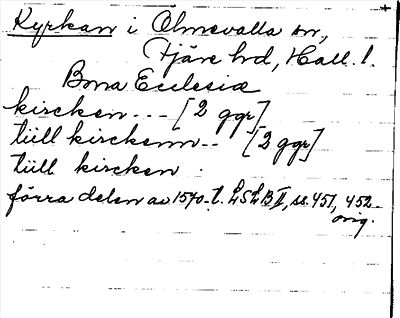 Kyrkan i Ölmevalla sn,
Fjäre hd, Hall. l.
Bona Ecclesiæ
kircken --- [2 ggr]
tüll kirckenn -- [2 ggr]
tüll kircken .
förra delen av 1570-t. LSLB II, ss. 451, 452
orig.